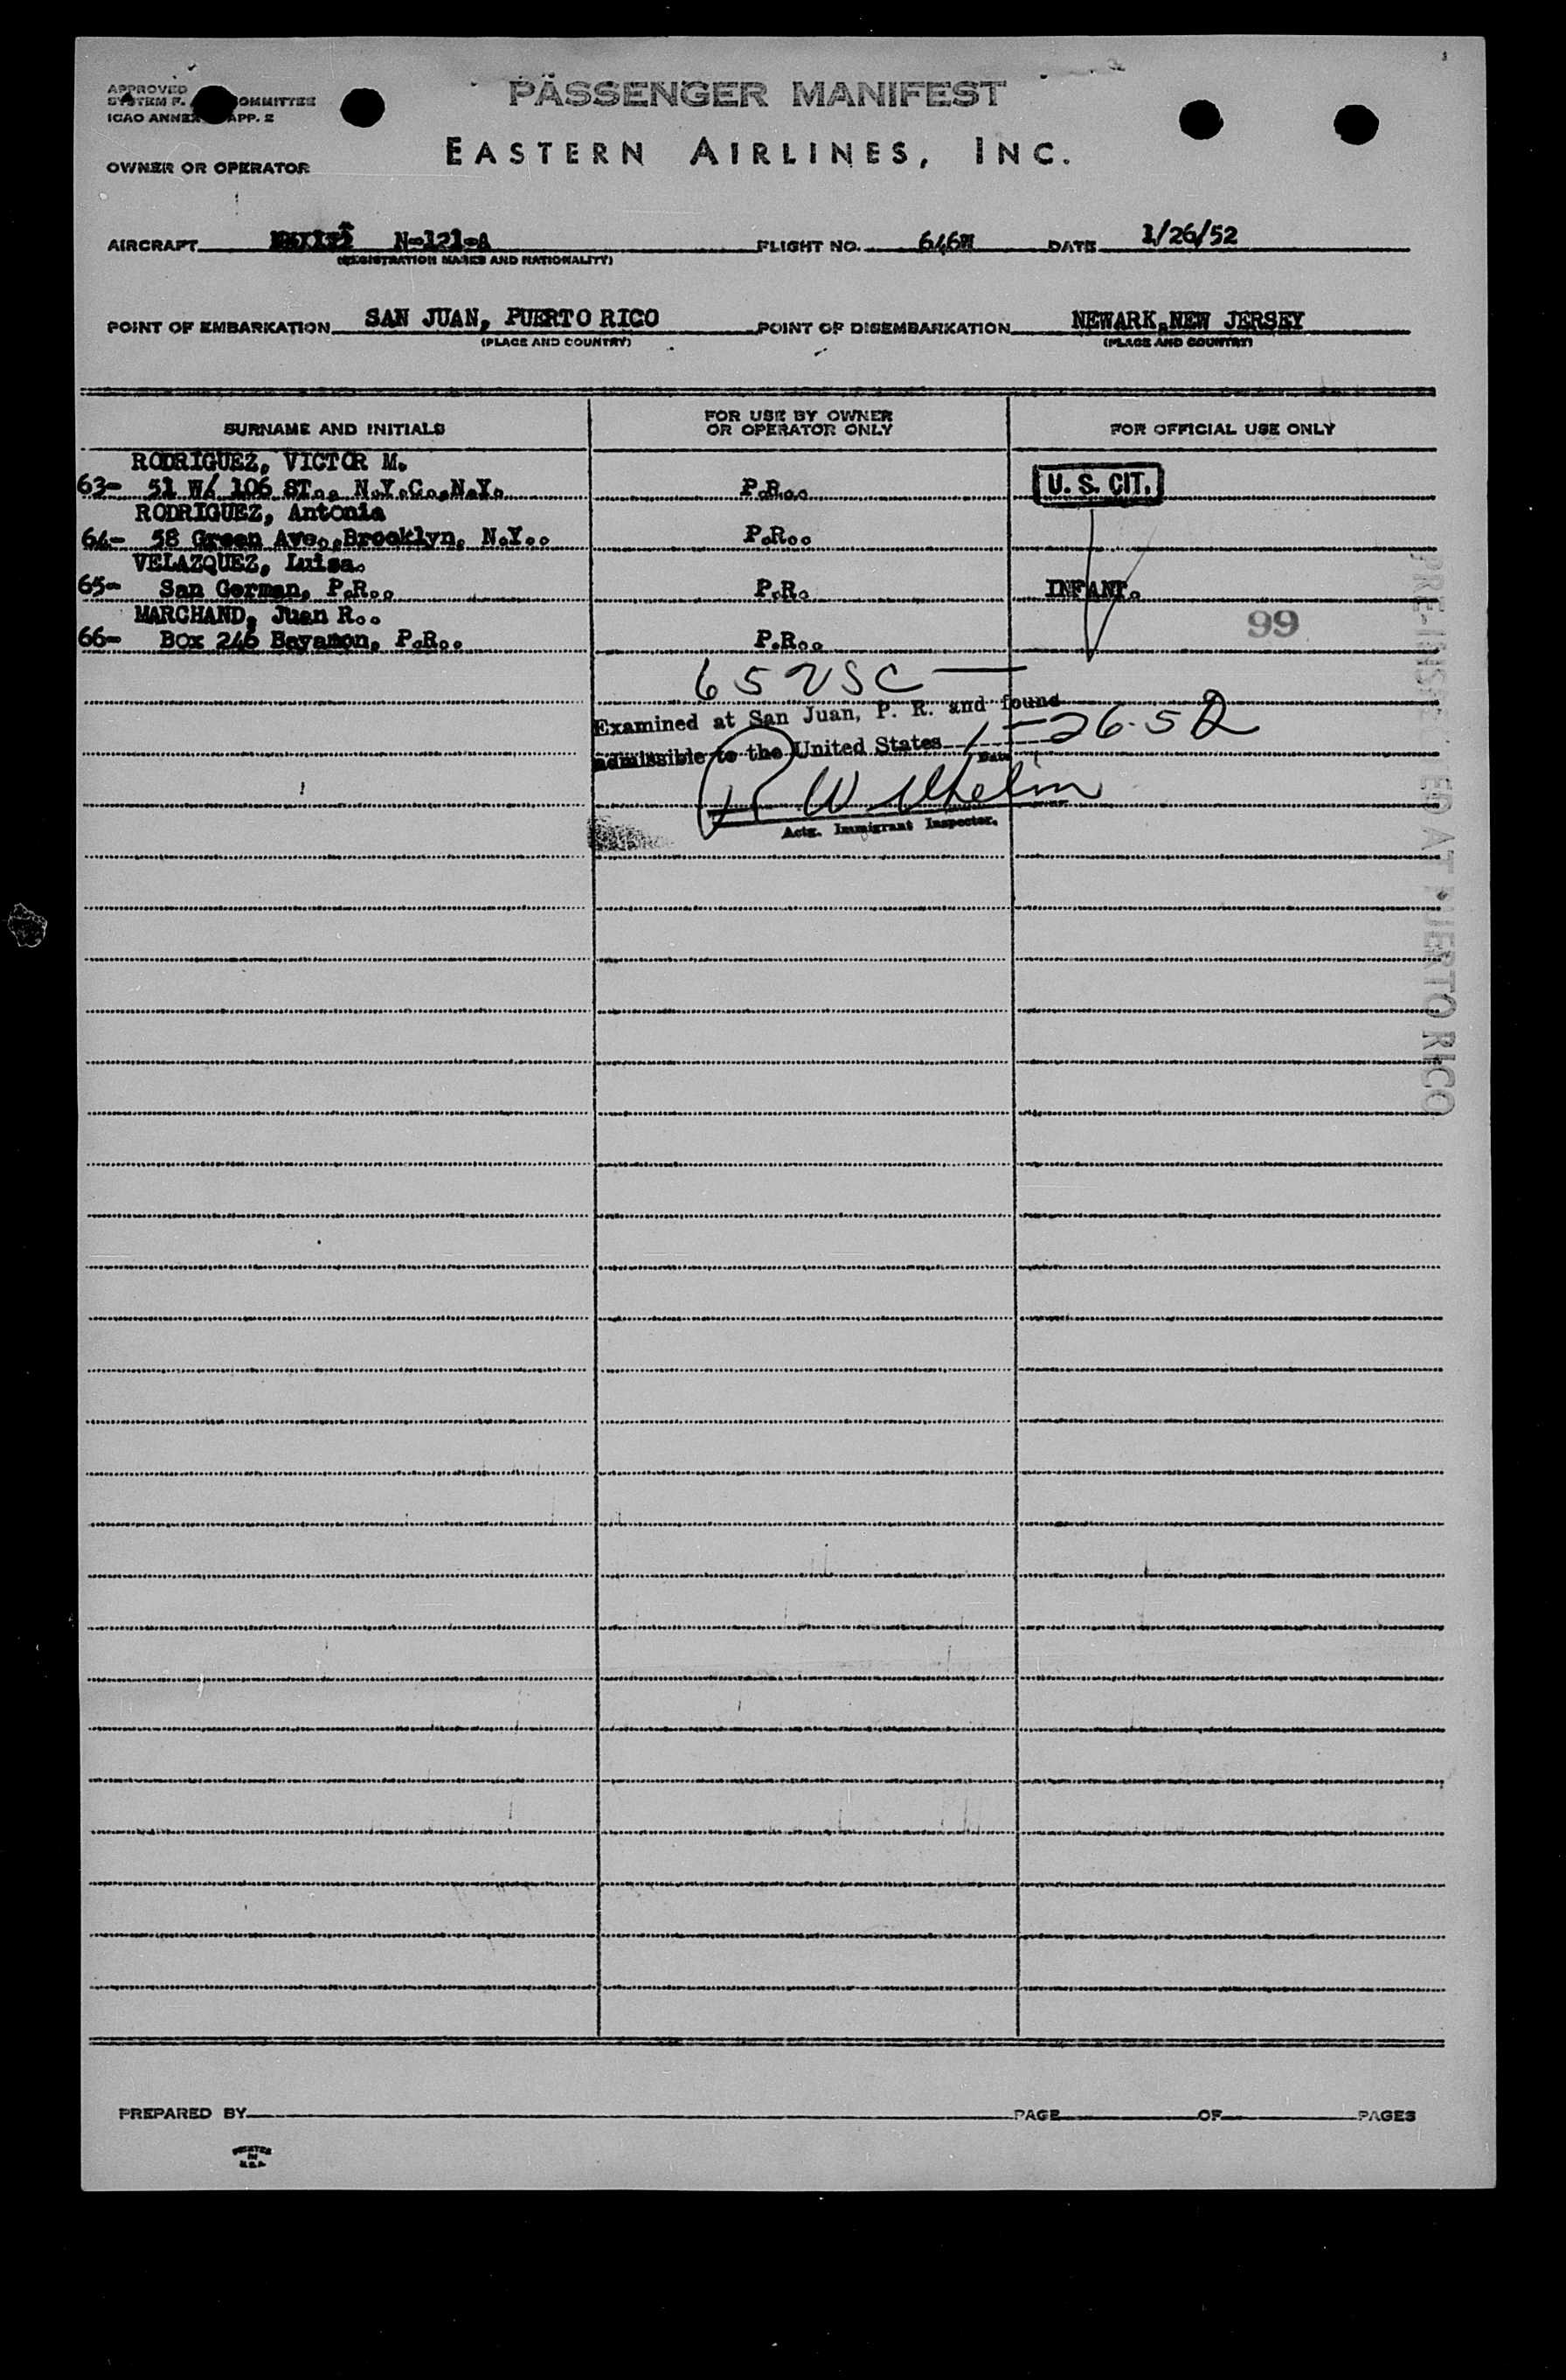 APPROVED
SYSTEM F. OMMITTEE
ICAO ANNEX APP. 2
PASSENGER MANIFEST
EASTERN AIRLINES, INC.
OWNER OR OPERATOR
AIRCRAFT N-121-A FLIGHT NO. 646W DATE 1/26/52
(REGISTRATION MARKS AND NATIONALITY)
POINT OF EMBARKATION SAN JUAN, PUERTO RICO POINT OF DISEMBARKATION NEWARK,NEW JERSEY
(PLACE AND COUNTRY) (PLACE AND COUNTRY)
SURNAME AND INITIALS FOR USE BY OWNER OR OPERATOR ONLY FOR OFFICIAL USE ONLY
RODRIGUEZ, VICTOR M.
63- 51 W/ 106 ST., N.Y.C.,N.Y. P.R.. U. S. CIT.
RODRIGUEZ, Antonia
64- 58 Green Ave.,Brooklyn, N.Y.. P.R..
VELAZQUEZ, Luisa.
65- San German, P.R.. P.R. INFANT.
MARCHAND, Juan R..
66- Box 246 Bayamon, P.R.. P.R..
99
65 USC
Examined at San Juan, P. R. and found
admissible to the United States 1-26-52
Date
R Wilhelm
Actg. Immigrant Inspector.
PRE-INSPECTED AT PUERTO RICO
PREPARED BY PAGE OF PAGES
PRINTED
IN
U.S.A.